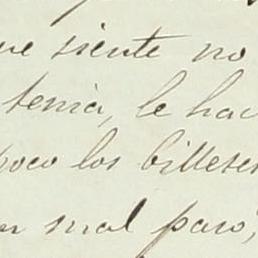 ue siente no
tenia, le hac
poco los billetes
un mal paso,